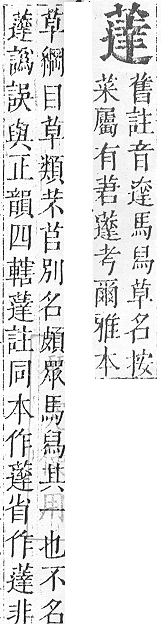 薘
舊註音達馬舄草名按
菜屬有莙薘考爾雅本
草綱目草類芣苢別名頗眾馬舄其一也不名
薘譌誤與正韻四轄薘註同本作薘省作薘非